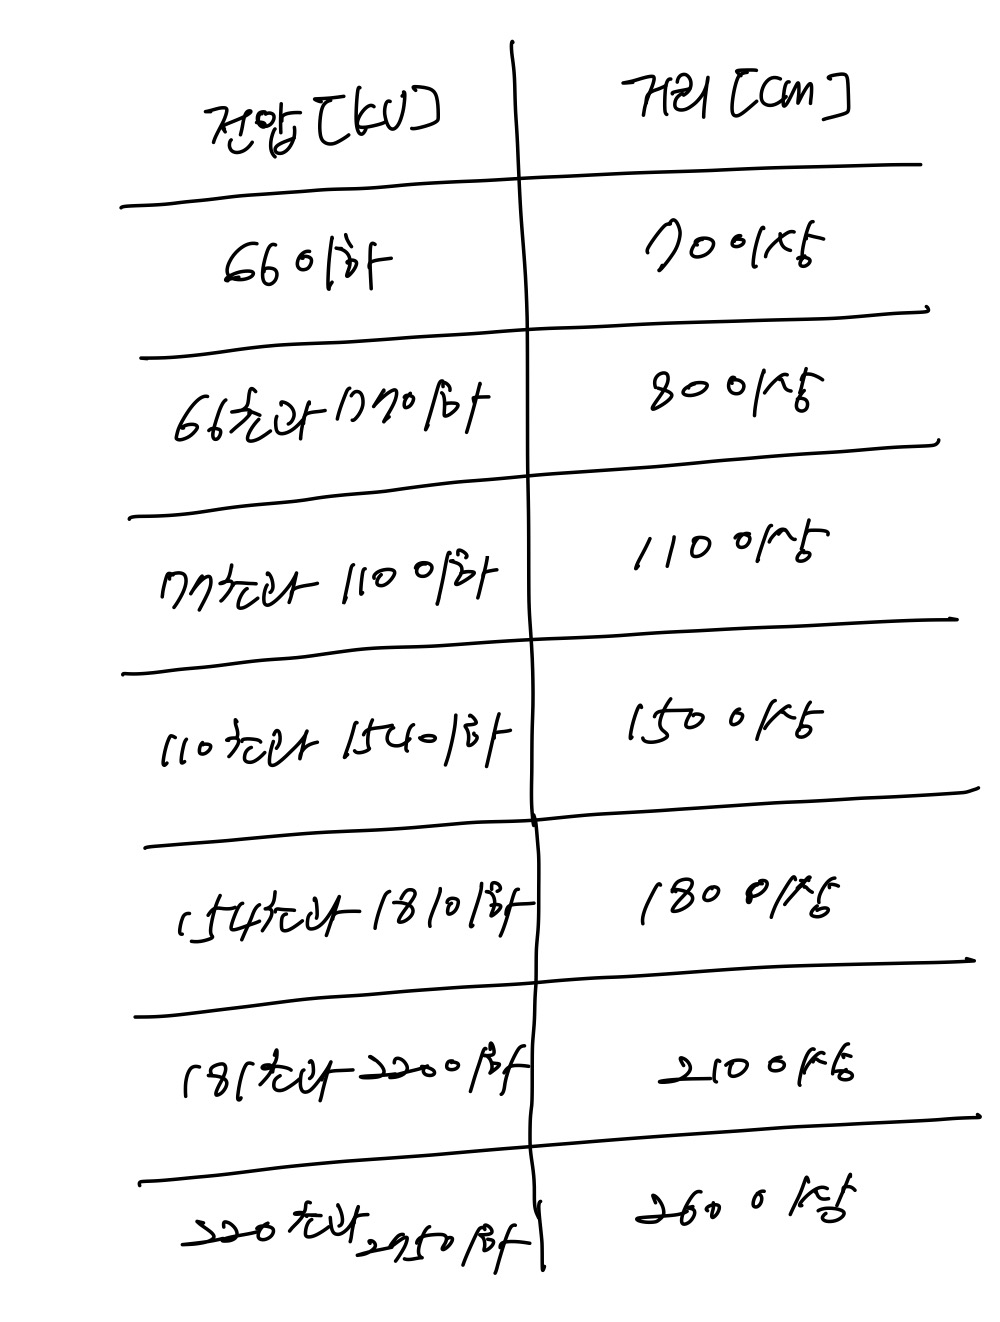 전압[kV] 거리[cm]
66이하 70이상
66초과 77이하 80이상
77초과 110이하 110이상
110초과 154이하 150이상
154초과 181이하 180이상
181초과 220이하 210이상
220초과 275이하 260이상